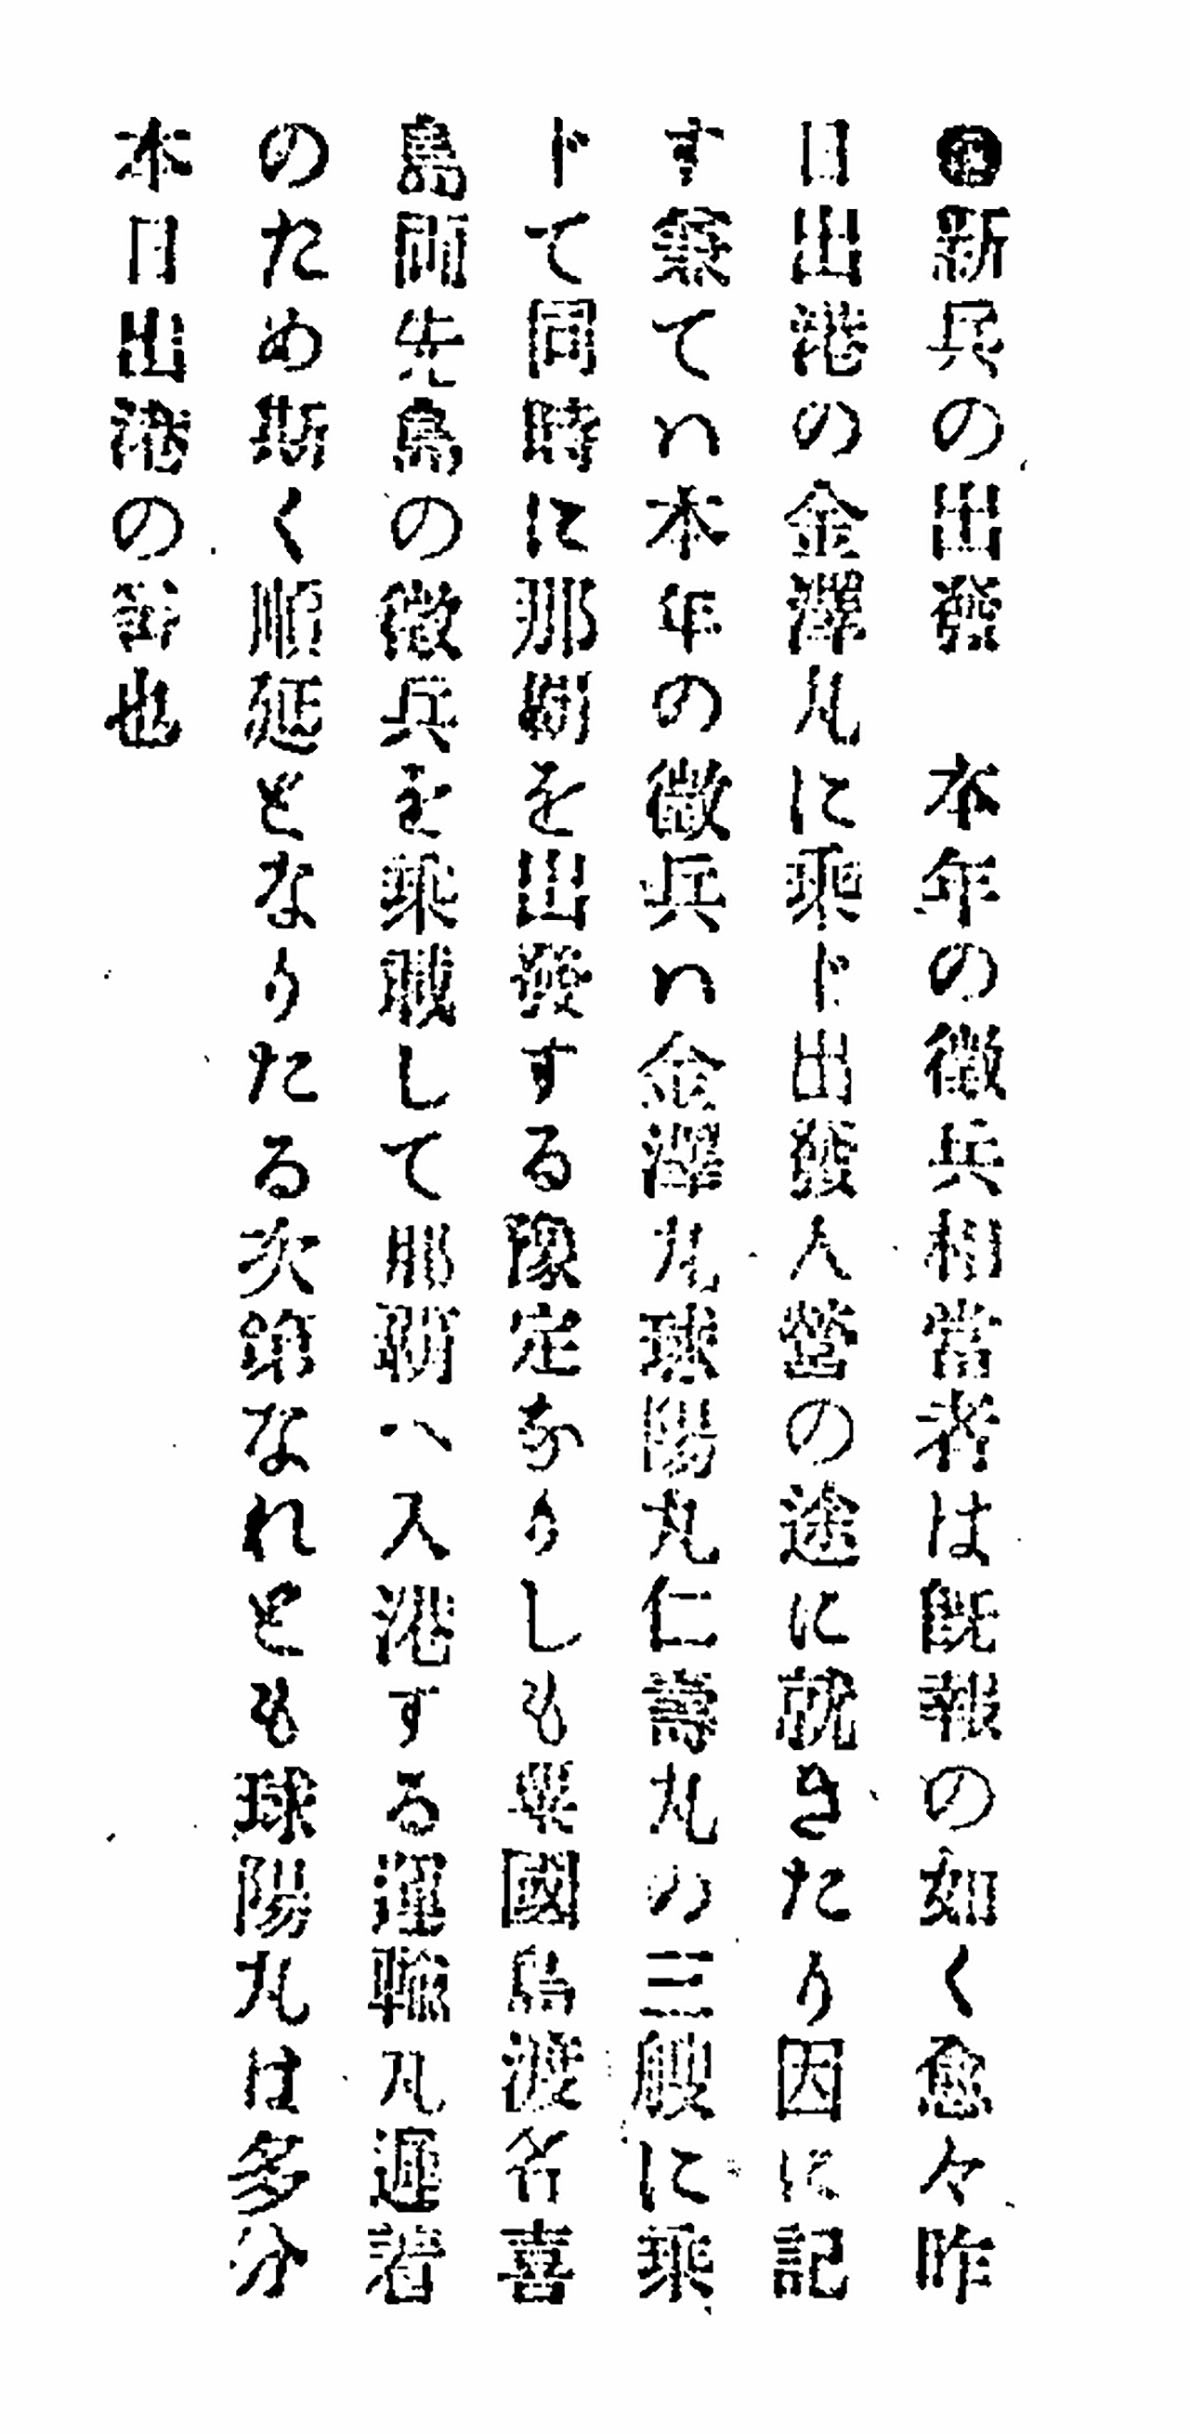 ●新兵の出發　本年の徴兵相當者は既報の如く愈々昨
日出港の金澤丸に乘ド出發入營の途に就きたり因に記
す兼てハ本年の徴兵ハ金澤丸球陽丸仁壽丸の三艘に乘
ドて同時に那覇を出發する豫定なりしも與國島渡名喜
島両先島の徴兵を乘戟して那覇へ入港する運輸丸遲着
のため斯く順延となりたる次第なれども球陽丸は多分
本日出港の筈也